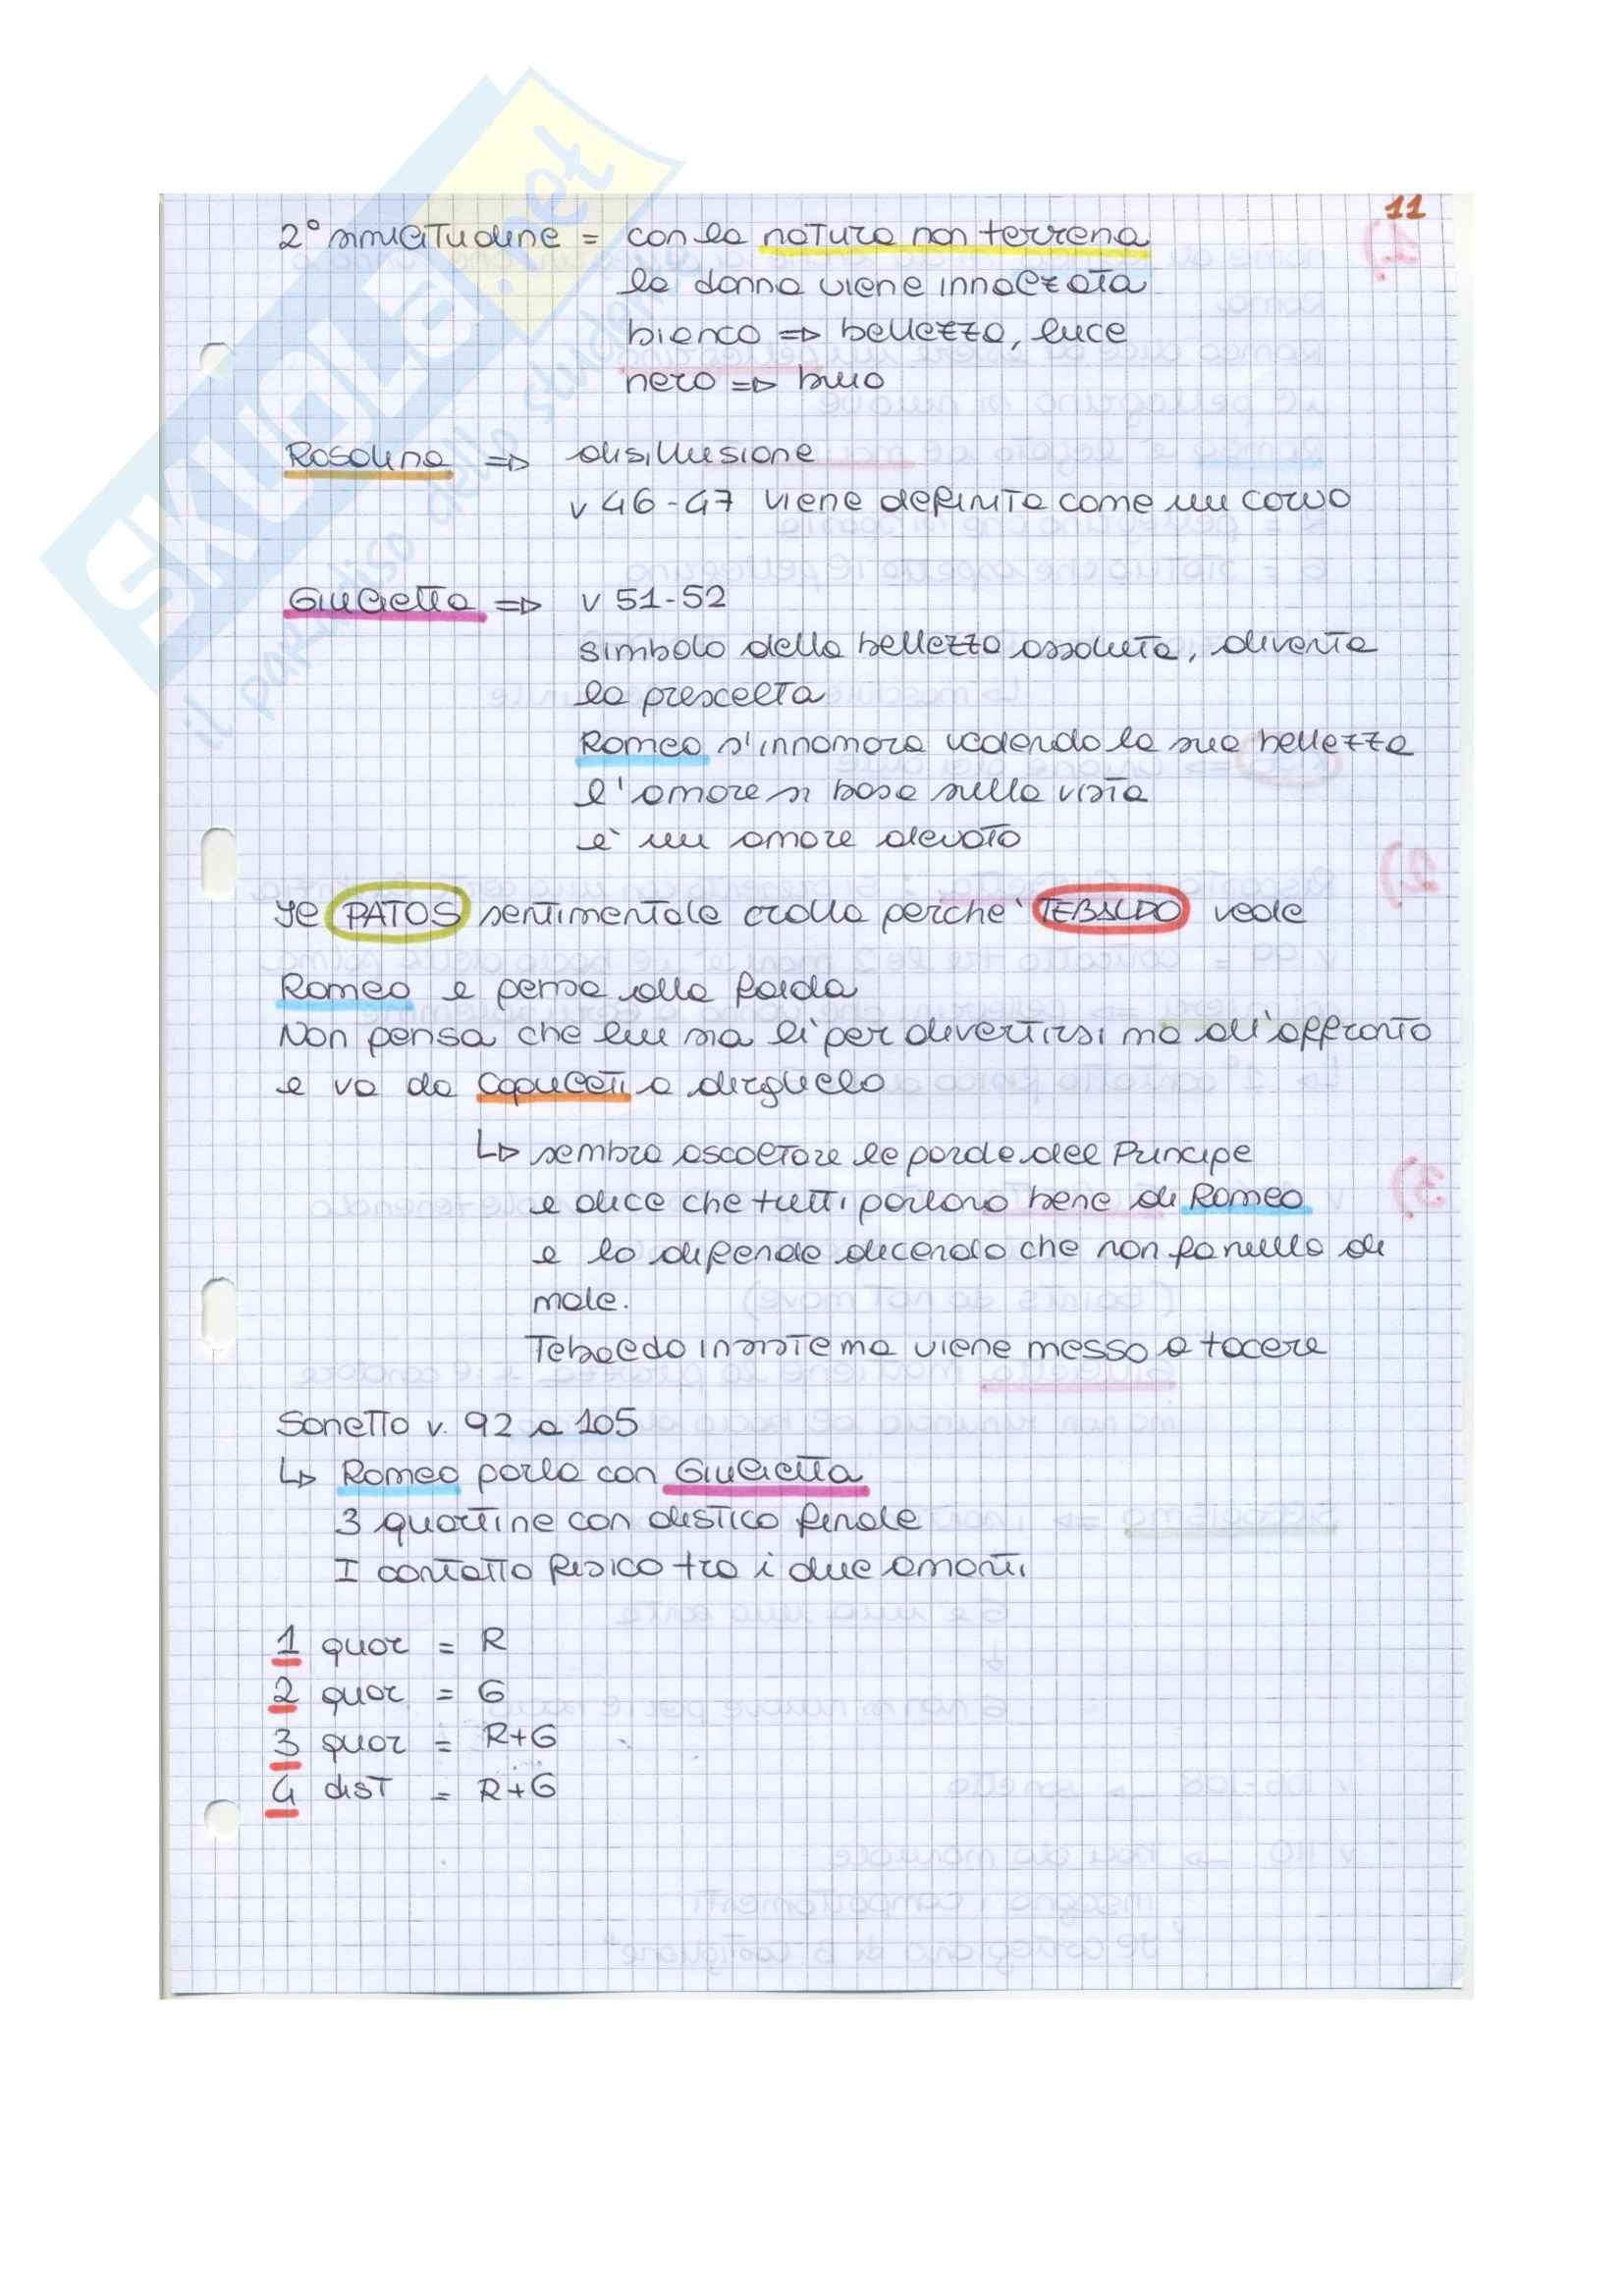 11
2° similitudine = con la natura non terrena
la donna viene innalzata
bianco ⇒ bellezza, luce
nero ⇒ buio
Rosalina ⇒ disillusione
v 46-47 viene definita come un corvo
Giulietta ⇒ v 51-52
simbolo della bellezza assoluta, diventa
la prescelta
Romeo s'innamora vedendo la sua bellezza
l'amore si basa sulla vista
è un amore devoto
Il PATOS sentimentale crolla perche' TEBALDO vede
Romeo e pensa alla faida
Non pensa che lui sia li' per divertirsi ma all'affronto
e va da Capuleti a dirglielo
↳ sembra ascoltare le parole del Principe
e dice che tutti parlano bene di Romeo
e lo difende dicendo che non fa nulla di
male.
Tebaldo insiste ma viene messo a tacere
Sonetto v. 92 a 105
↳ Romeo parla con Giulietta
3 quartine con distico finale
I contatto fisico tra i due amanti
1 quar = R
2 quar = G
3 quar = R+G
4 dist = R+G
SKUOLA.net
il paradiso dello studente